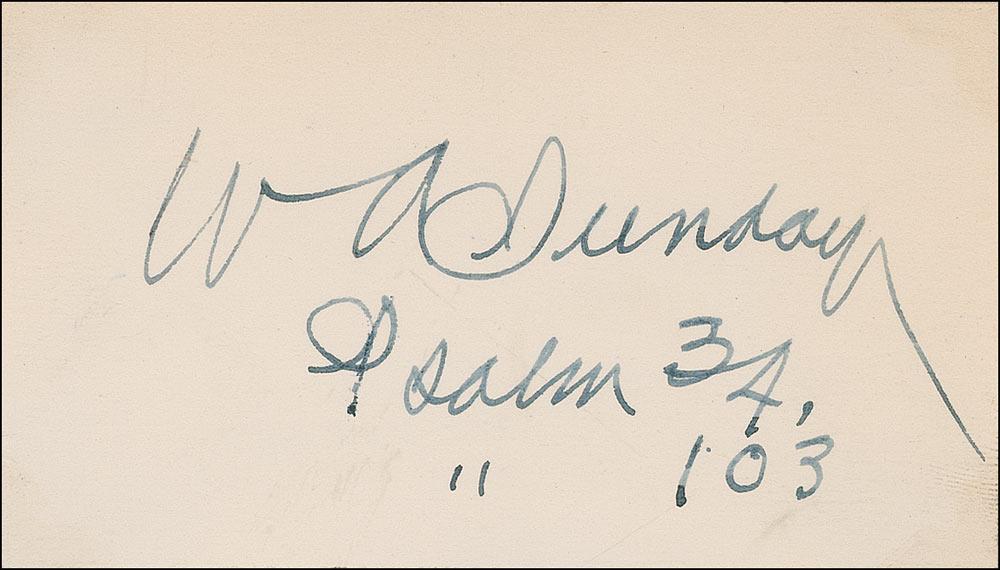 W A Sunday
Psalm 34,
" 103